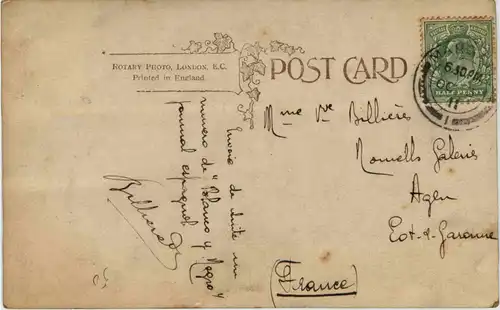 ROTARY PHOTO, LONDON, E.C.
Printed in England.
POST CARD
HALF PENNY
6.30 PM
11
Mme Vve Billières
Nouvells Galeries
Agen
Lot-et-Garonne
(France)
Envoie de suite un
numero de "Blanco y Negro"
journal espagnol